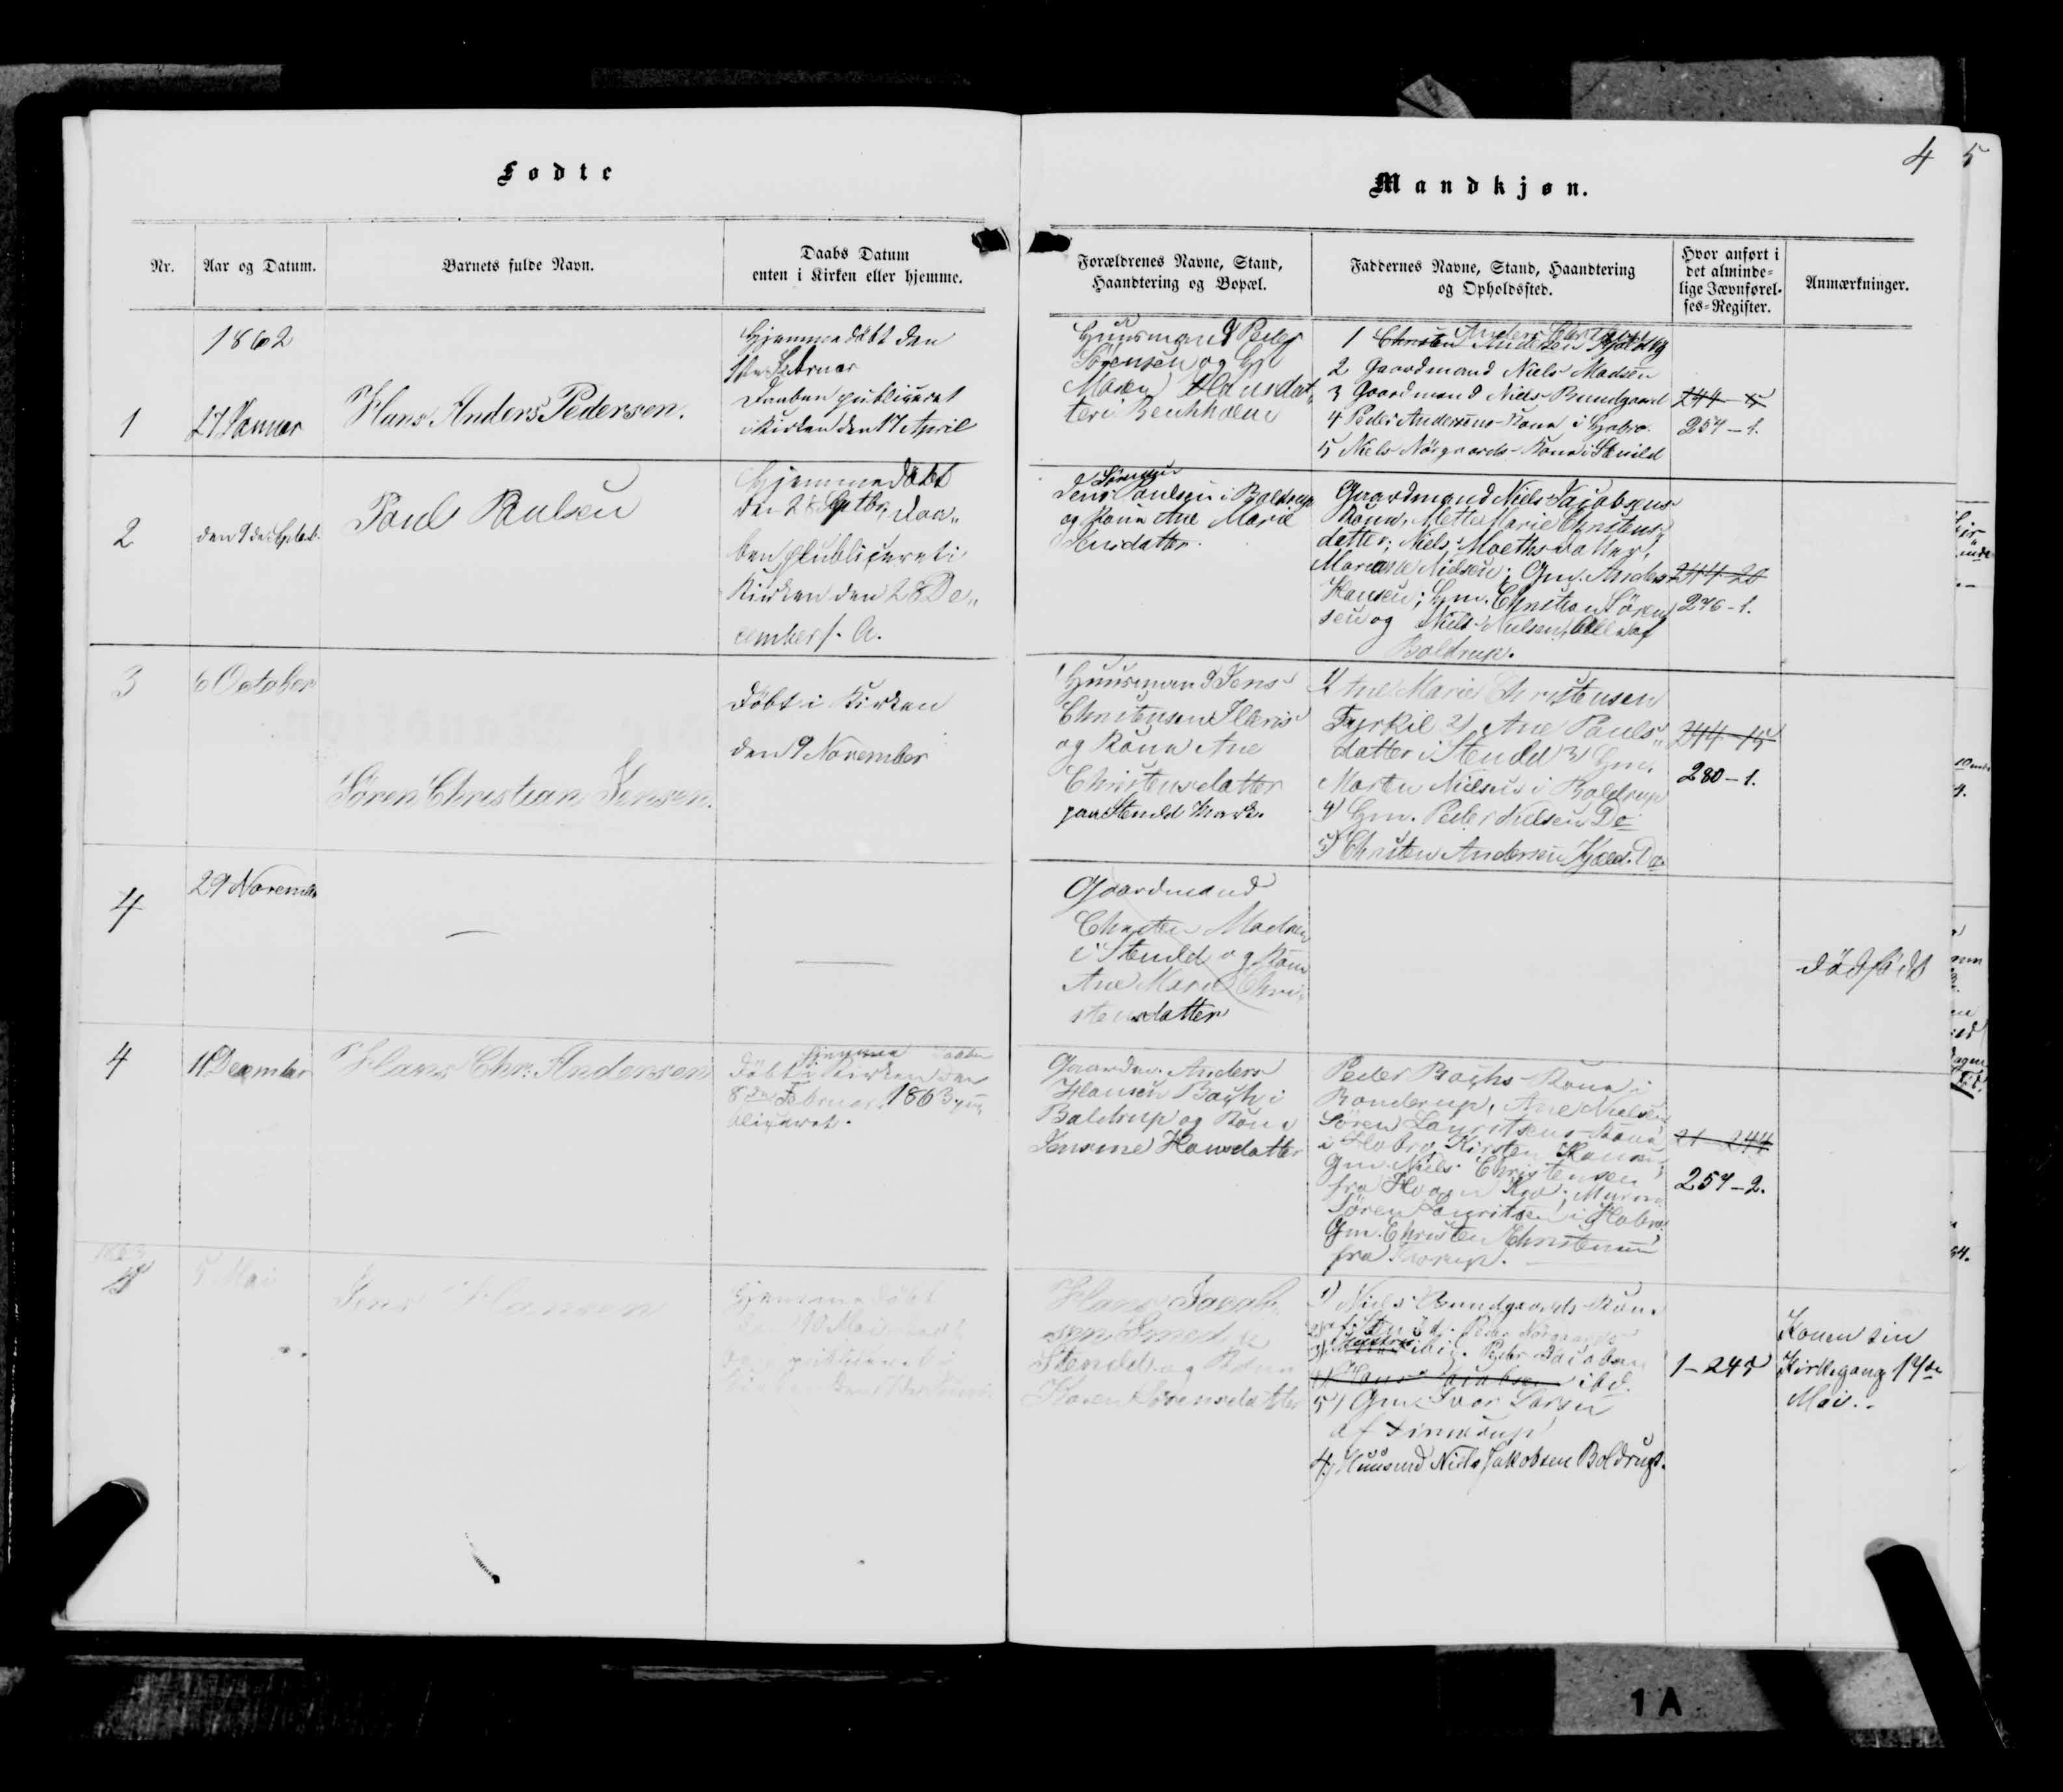 4 5
Fødte
Mandkjøn.
Nr.
Aar og Datum.
Barnets fulde Navn.
Daabs Datum
enten i Kirken eller hjemme.
Forældrenes Navne, Stand,
Haandtering og Bopæl.
Faddernes Navne, Stand, Haandtering
og Opholdssted.
Hvor anført i
det alminde-
lige Jævnførel-
ses-Register.
Anmærkninger.
1862
1
27 Januar
Hans Anders Pedersen.
Hjemmedøbt den
Februar
Daaben publiceret
i Kirken den 17 April
Huusmand Peder
Sørensen og
Maren Hansdat„
ter i
1 Christen Andersen
2 Gaardmand Niels Madsen
3 Gaardmand Niels Bundgaard
4 Peder Andersens Kone i Hobro.
5 Niels Nørgaards Kone i Stenild
254-1.
2
den 9de Septbr.
Poul Poulsen
Hjemmedøbt
den 28 Septbr, Daa„
ben publiceret i
Kirken den 28 De„
cember s. A.
Jens Poulsen i Boldrup
og Kone Ane Marie
Jensdatter.
Gaardmand Niels Jacobsens
Kone, Mette Marie Christens
datter; Niels
Mariane Nielsen; Gm. Anders
Hansen; Hm. Christian Søren
sen og Niels Nielsen, Alle af
Boldrup.
244 20
276-1.
3
6 October
Søren Christian Jensen.
Døbt i Kirken
den 9 November
Huusmand Jens
Christensen Illeris
og Kone Ane
Christensdatter
paa Stenild Mark.
1) Ane Marie Christensen
Tyrkil 2) Ane Pouls„
datter i Stenild 3) Gm.
Morten Nielsen i Boldrup
4) Gm. Peder Nielsen Do
5) Christen Andersen Kjæld. Do.
244 15
280-1.
4
29 Novemb.
—
—
Gaardmand
Christen Madsen
i Stenild og Kone
Ane Marie Chri
stensdatter
dødfødt
4
11 December
Hans Chr. Andersen
hjemme Daaben
Døbt i Kirken den
8de Februar 1863 pu
bliceret.
Gaardm. Anders
Hansen Bach i
Boldrup og Kone
Jensine Hansdatter
Peder Bachs Kone i
Bonderup, Ane Nielsen
Søren Lauritsens Kone
i Hobro, Kirsten Hansen
Gm. Niels Christensen
fra
Søren Lauritsen i Hobro
Gm. Christen Christensen
fra
21 244
254-2.
1863
5 Mai
Jens Hansen
Hjemmedøbt
den 10 Mai
Hans Jacob„
sen Smed i
Stenild og Kone
Karen Sørensdatter
1) Niels Bundgaards Kone
ibid. Peder Jacobsen
Hans Jacobsen ibd.
5) Gm. Ivar Larsen
af Finderup
4) Huusmd Niels Jakobsen Boldrup.
1-247
Konen sin
Kirkegang 14de
Mai.
1 A